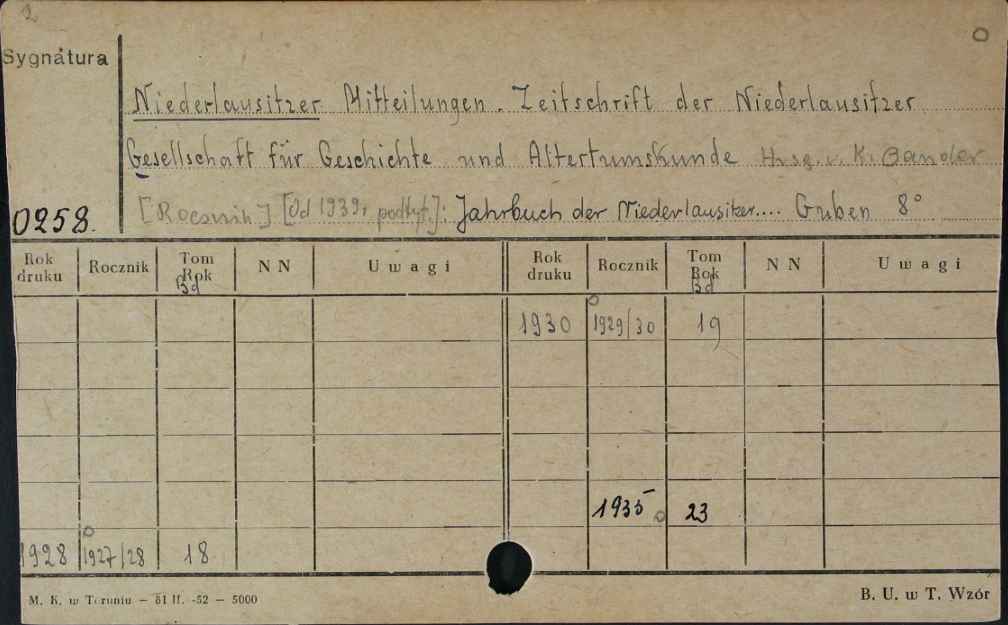 2
O
Sygnatura
Niederlausitzer Mitteilungen. Zeitschrift der Niederlausitzer
Gesellschaft für Geschichte und Altertumskunde Hrsg. v. K. Gander
0258. [Rocznik] [Od 1939r podtyt.]: Jahrbuch der Niederlausitzer.... Guben 8°
Rok druku Rocznik Tom Rok Bd NN Uwagi Rok druku Rocznik Tom Rok Bd NN Uwagi
1930 1929/30 19
1935 23
1928 1927/28 18
M. K. w Toruniu — 51 II. -52 — 5000 B. U. w T. Wzór